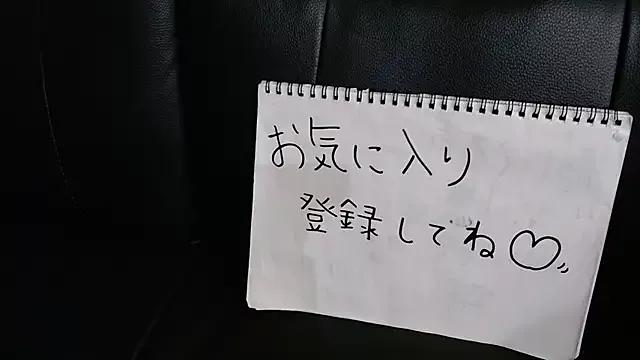 お気に入り
登録してね♡